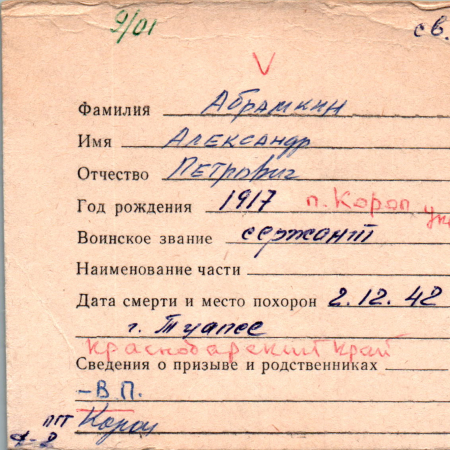 9/01 св.
V
Фамилия Абрамкин
Имя Александр
Отчество Петрович
Год рождения 1917 п. Короп
Воинское звание сержант
Наименование части
Дата смерти и место похорон 2.12.42
г. Туапсе
Краснодарский край
Сведения о призыве и родственниках
–В П.
пгт Короп